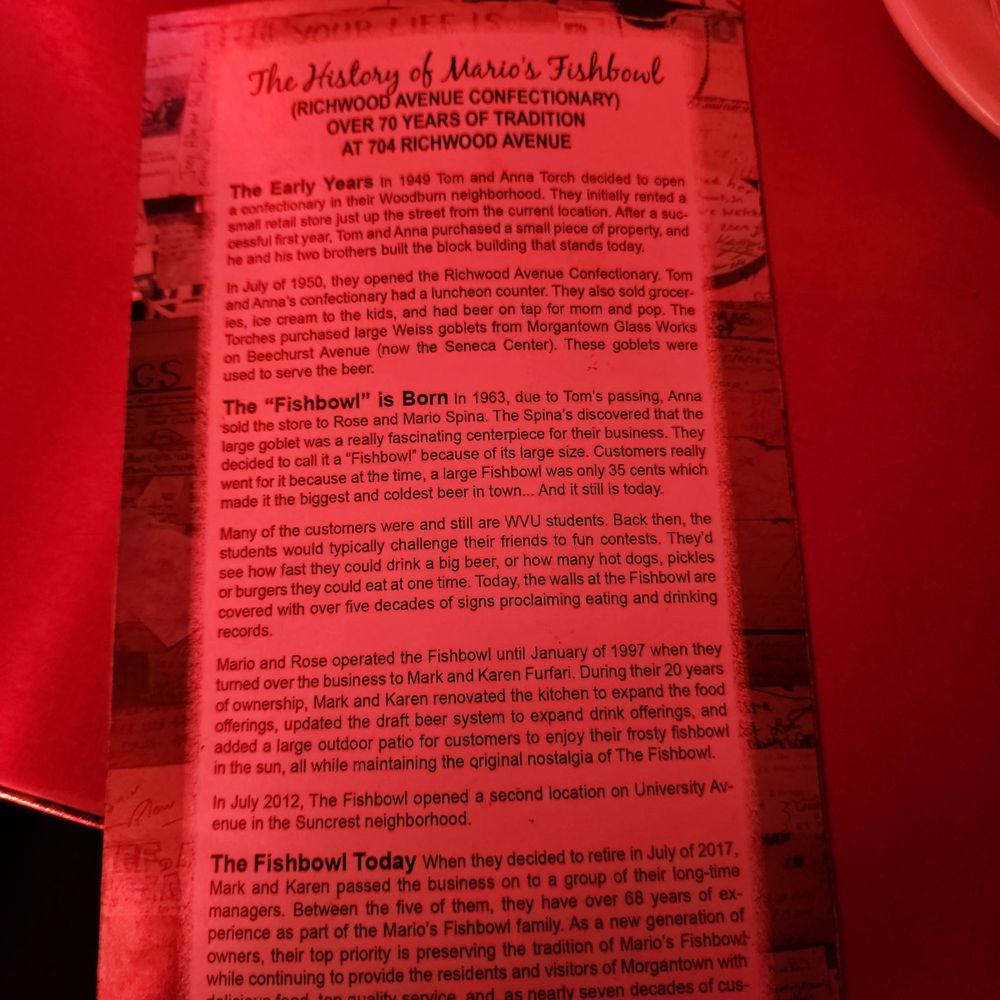 YOUR LIFE IS
The History of Mario's Fishbowl
(RICHWOOD AVENUE CONFECTIONARY)
OVER 70 YEARS OF TRADITION
AT 704 RICHWOOD AVENUE
The Early Years In 1949 Tom and Anna Torch decided to open
a confectionary in their Woodburn neighborhood. They initially rented a
small retail store just up the street from the current location. After a suc-
cessful first year, Tom and Anna purchased a small piece of property, and
he and his two brothers built the block building that stands today.
In July of 1950, they opened the Richwood Avenue Confectionary. Tom
and Anna's confectionary had a luncheon counter. They also sold grocer-
ies, ice cream to the kids, and had beer on tap for mom and pop. The
Torches purchased large Weiss goblets from Morgantown Glass Works
on Beechurst Avenue (now the Seneca Center). These goblets were
used to serve the beer.
The "Fishbowl" is Born In 1963, due to Tom's passing, Anna
sold the store to Rose and Mario Spina. The Spina's discovered that the
large goblet was a really fascinating centerpiece for their business. They
decided to call it a "Fishbowl" because of its large size. Customers really
went for it because at the time, a large Fishbowl was only 35 cents which
made it the biggest and coldest beer in town... And it still is today.
Many of the customers were and still are WVU students. Back then, the
students would typically challenge their friends to fun contests. They'd
see how fast they could drink a big beer, or how many hot dogs, pickles
or burgers they could eat at one time. Today, the walls at the Fishbowl are
covered with over five decades of signs proclaiming eating and drinking
records.
Mario and Rose operated the Fishbowl until January of 1997 when they
turned over the business to Mark and Karen Furfari. During their 20 years
of ownership, Mark and Karen renovated the kitchen to expand the food
offerings, updated the draft beer system to expand drink offerings, and
added a large outdoor patio for customers to enjoy their frosty fishbowl
in the sun, all while maintaining the original nostalgia of The Fishbowl.
In July 2012, The Fishbowl opened a second location on University Av-
enue in the Suncrest neighborhood.
The Fishbowl Today When they decided to retire in July of 2017,
Mark and Karen passed the business on to a group of their long-time
managers. Between the five of them, they have over 68 years of ex-
perience as part of the Mario's Fishbowl family. As a new generation of
owners, their top priority is preserving the tradition of Mario's Fishbowl
while continuing to provide the residents and visitors of Morgantown with
delicious food, top quality service, and, as nearly seven decades of cus-